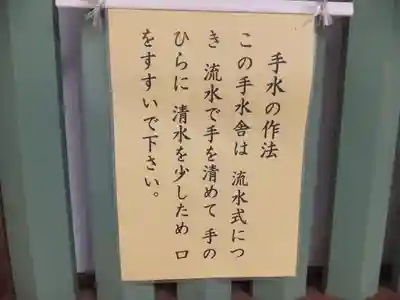 手水の作法
この手水舎は 流水式につ
き 流水で手を清めて 手の
ひらに 清水を少しため 口
をすすいで下さい。